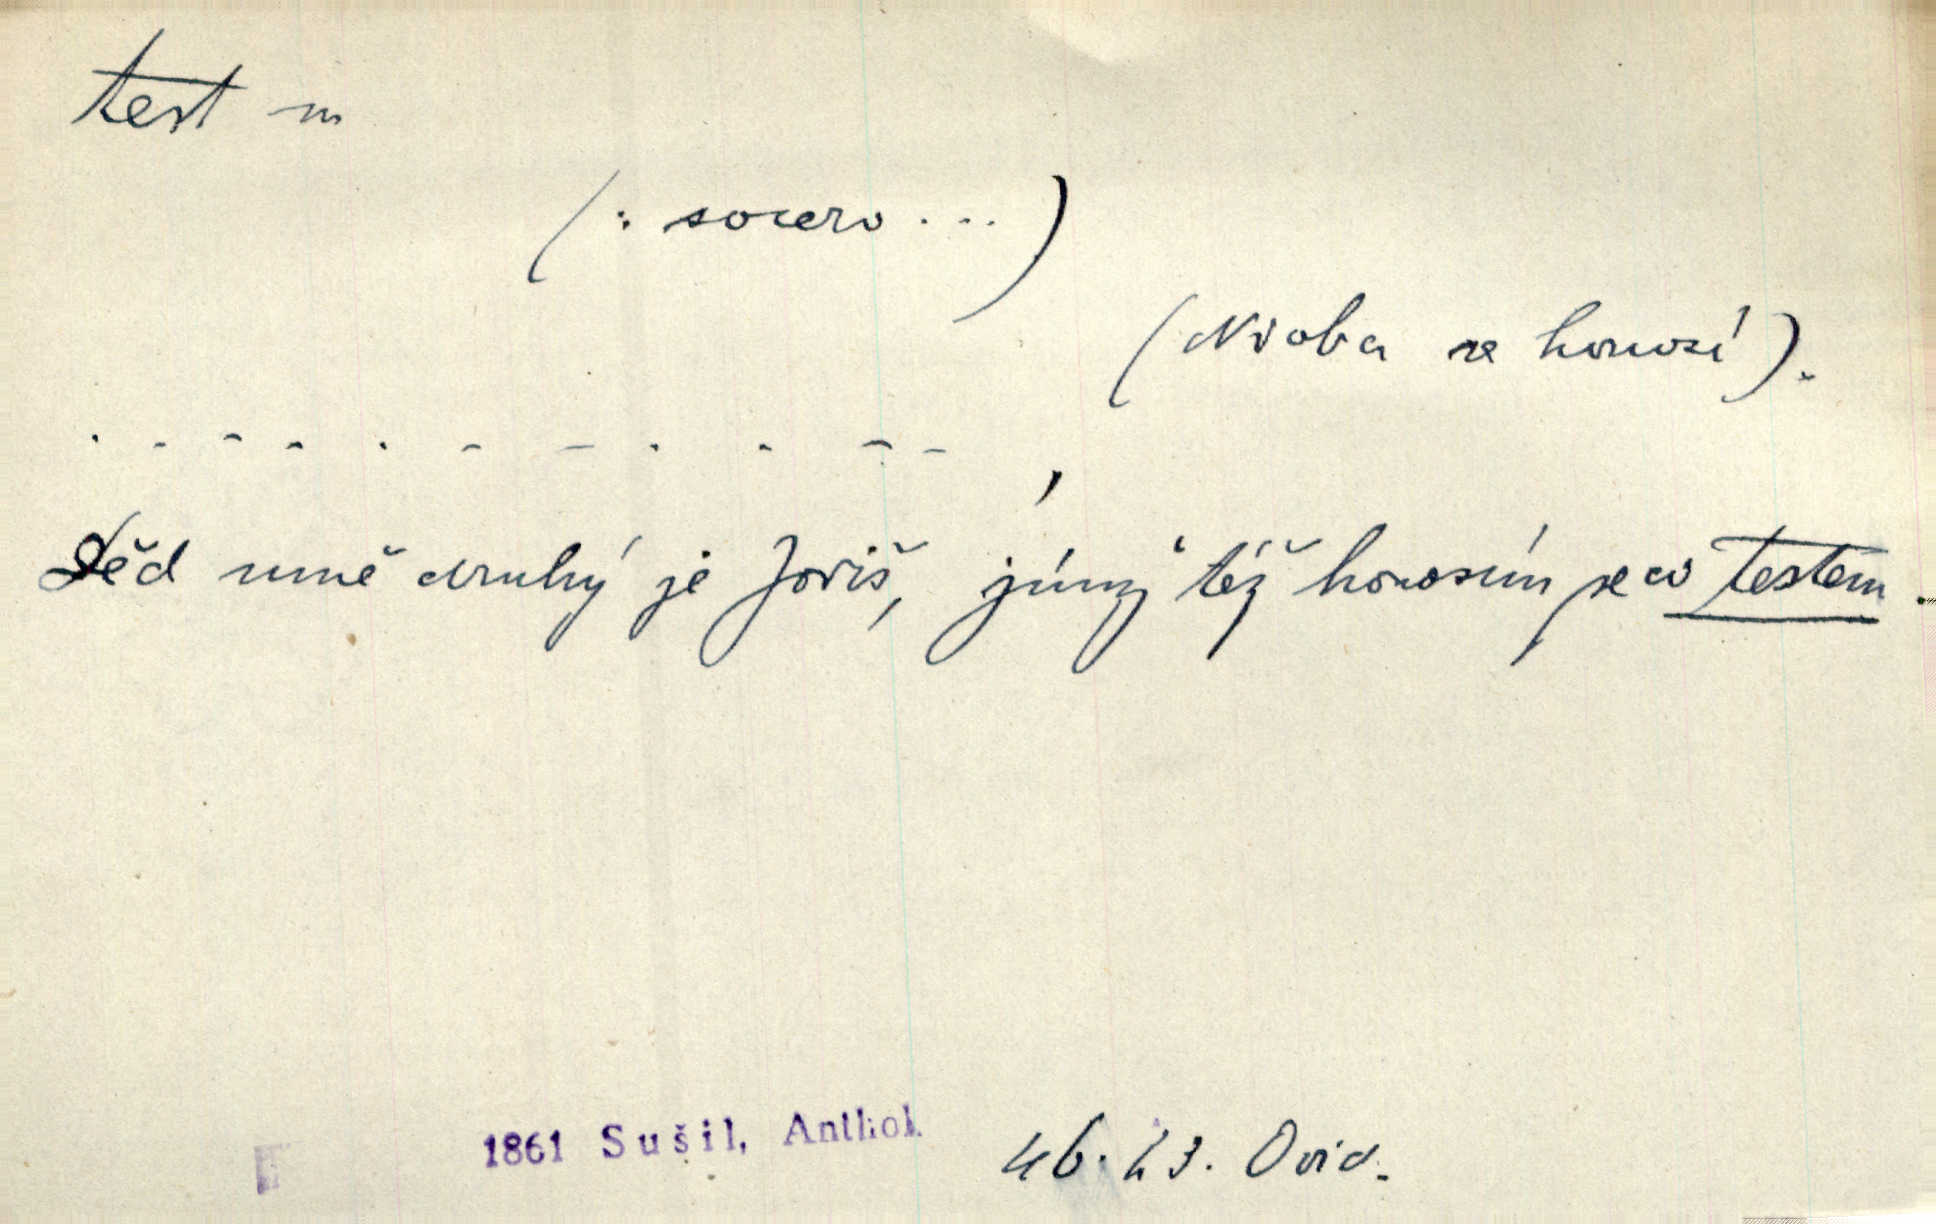 test m
(: socero ...)
(Nioba se honosí).
. . . . . . . . . . . ,
Děd mně druhý je Joviš, jímž též honosím se co testem.
1861 Sušil, Anthol. 46. 23. Ovid.